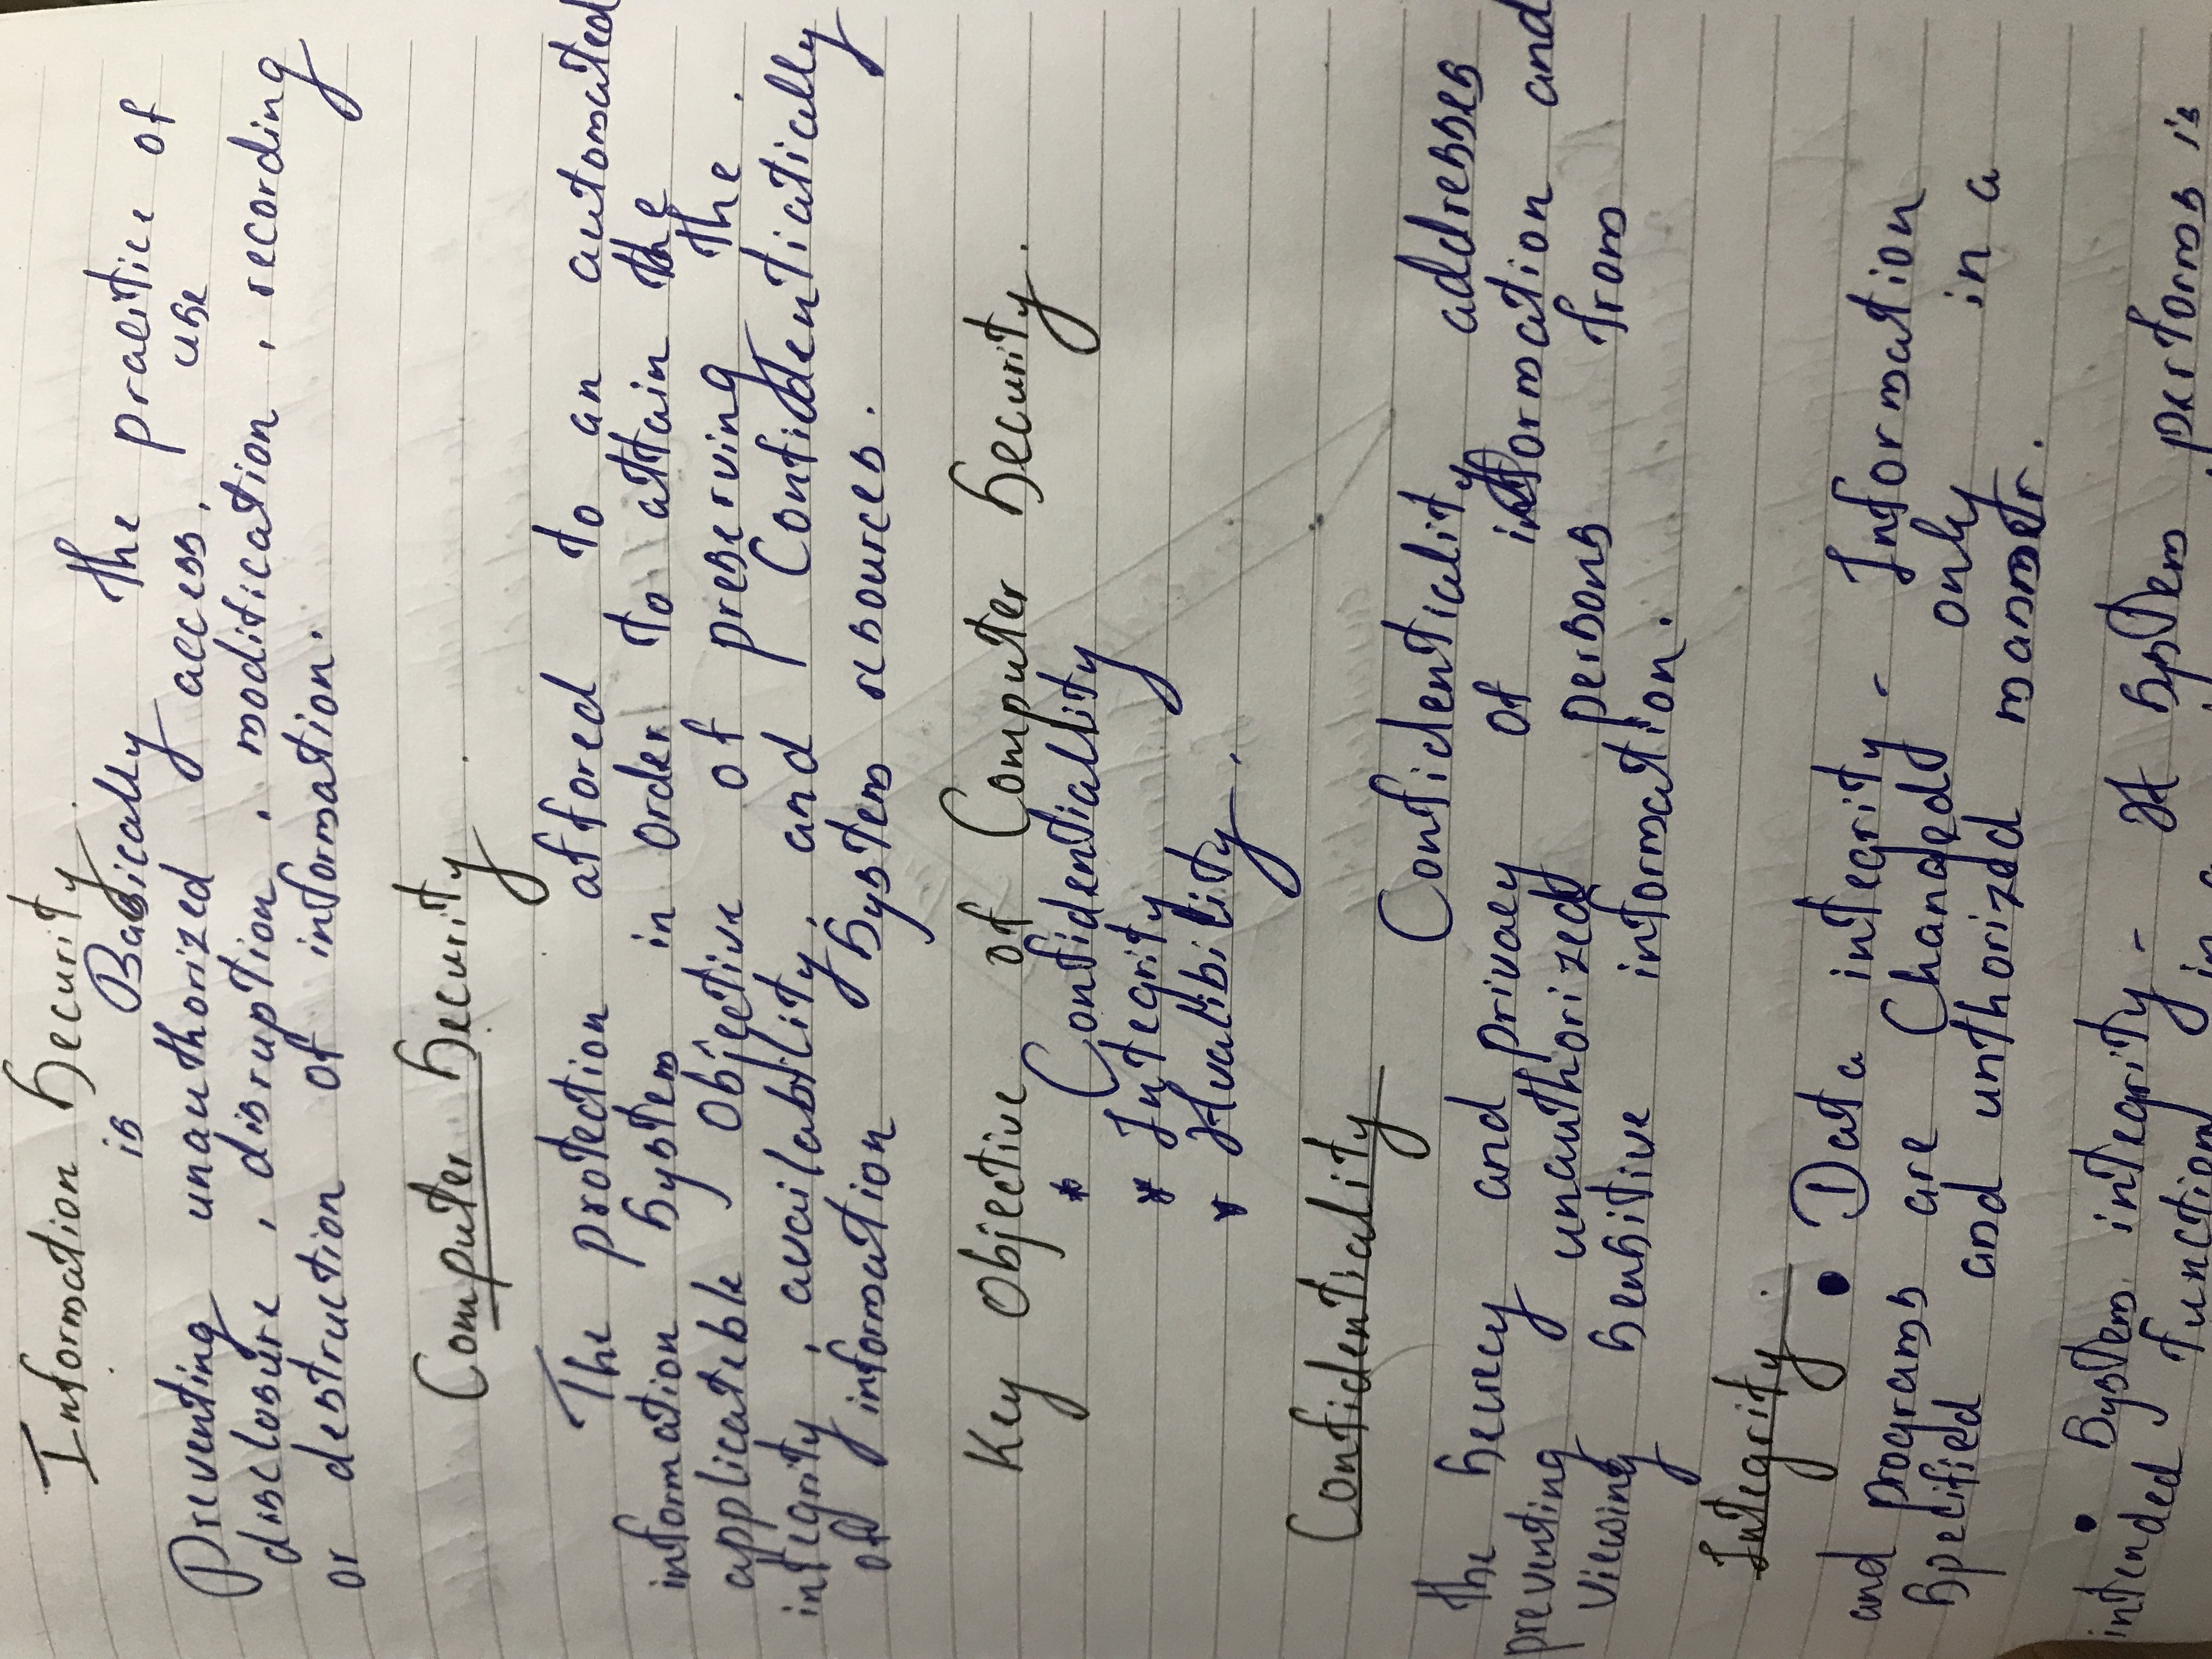 Information Security
is Basically the practice of
Preventing unauthorized access, use
disclosure, disruption, modification, recording
or destruction of information.
Computer Security
The protection affored to an automated
information System in order to attain the
applicateble Objective of preserving the
integrity, availability, and Confidentiatically
of information System resources.
Key Objective of Computer Security.
* Confidentiallity
* Integrity
* Avalibility
Confidentiality
Confidentiality addresses
the Secrecy and privacy of information and
preventing unauthorized persons from
Viewing Sensitive information.
Integrity
• Data integrity - Information
and programs are Changed only in a
Specified and unthorized manner.
• System integrity - At System performs is
intended function in a